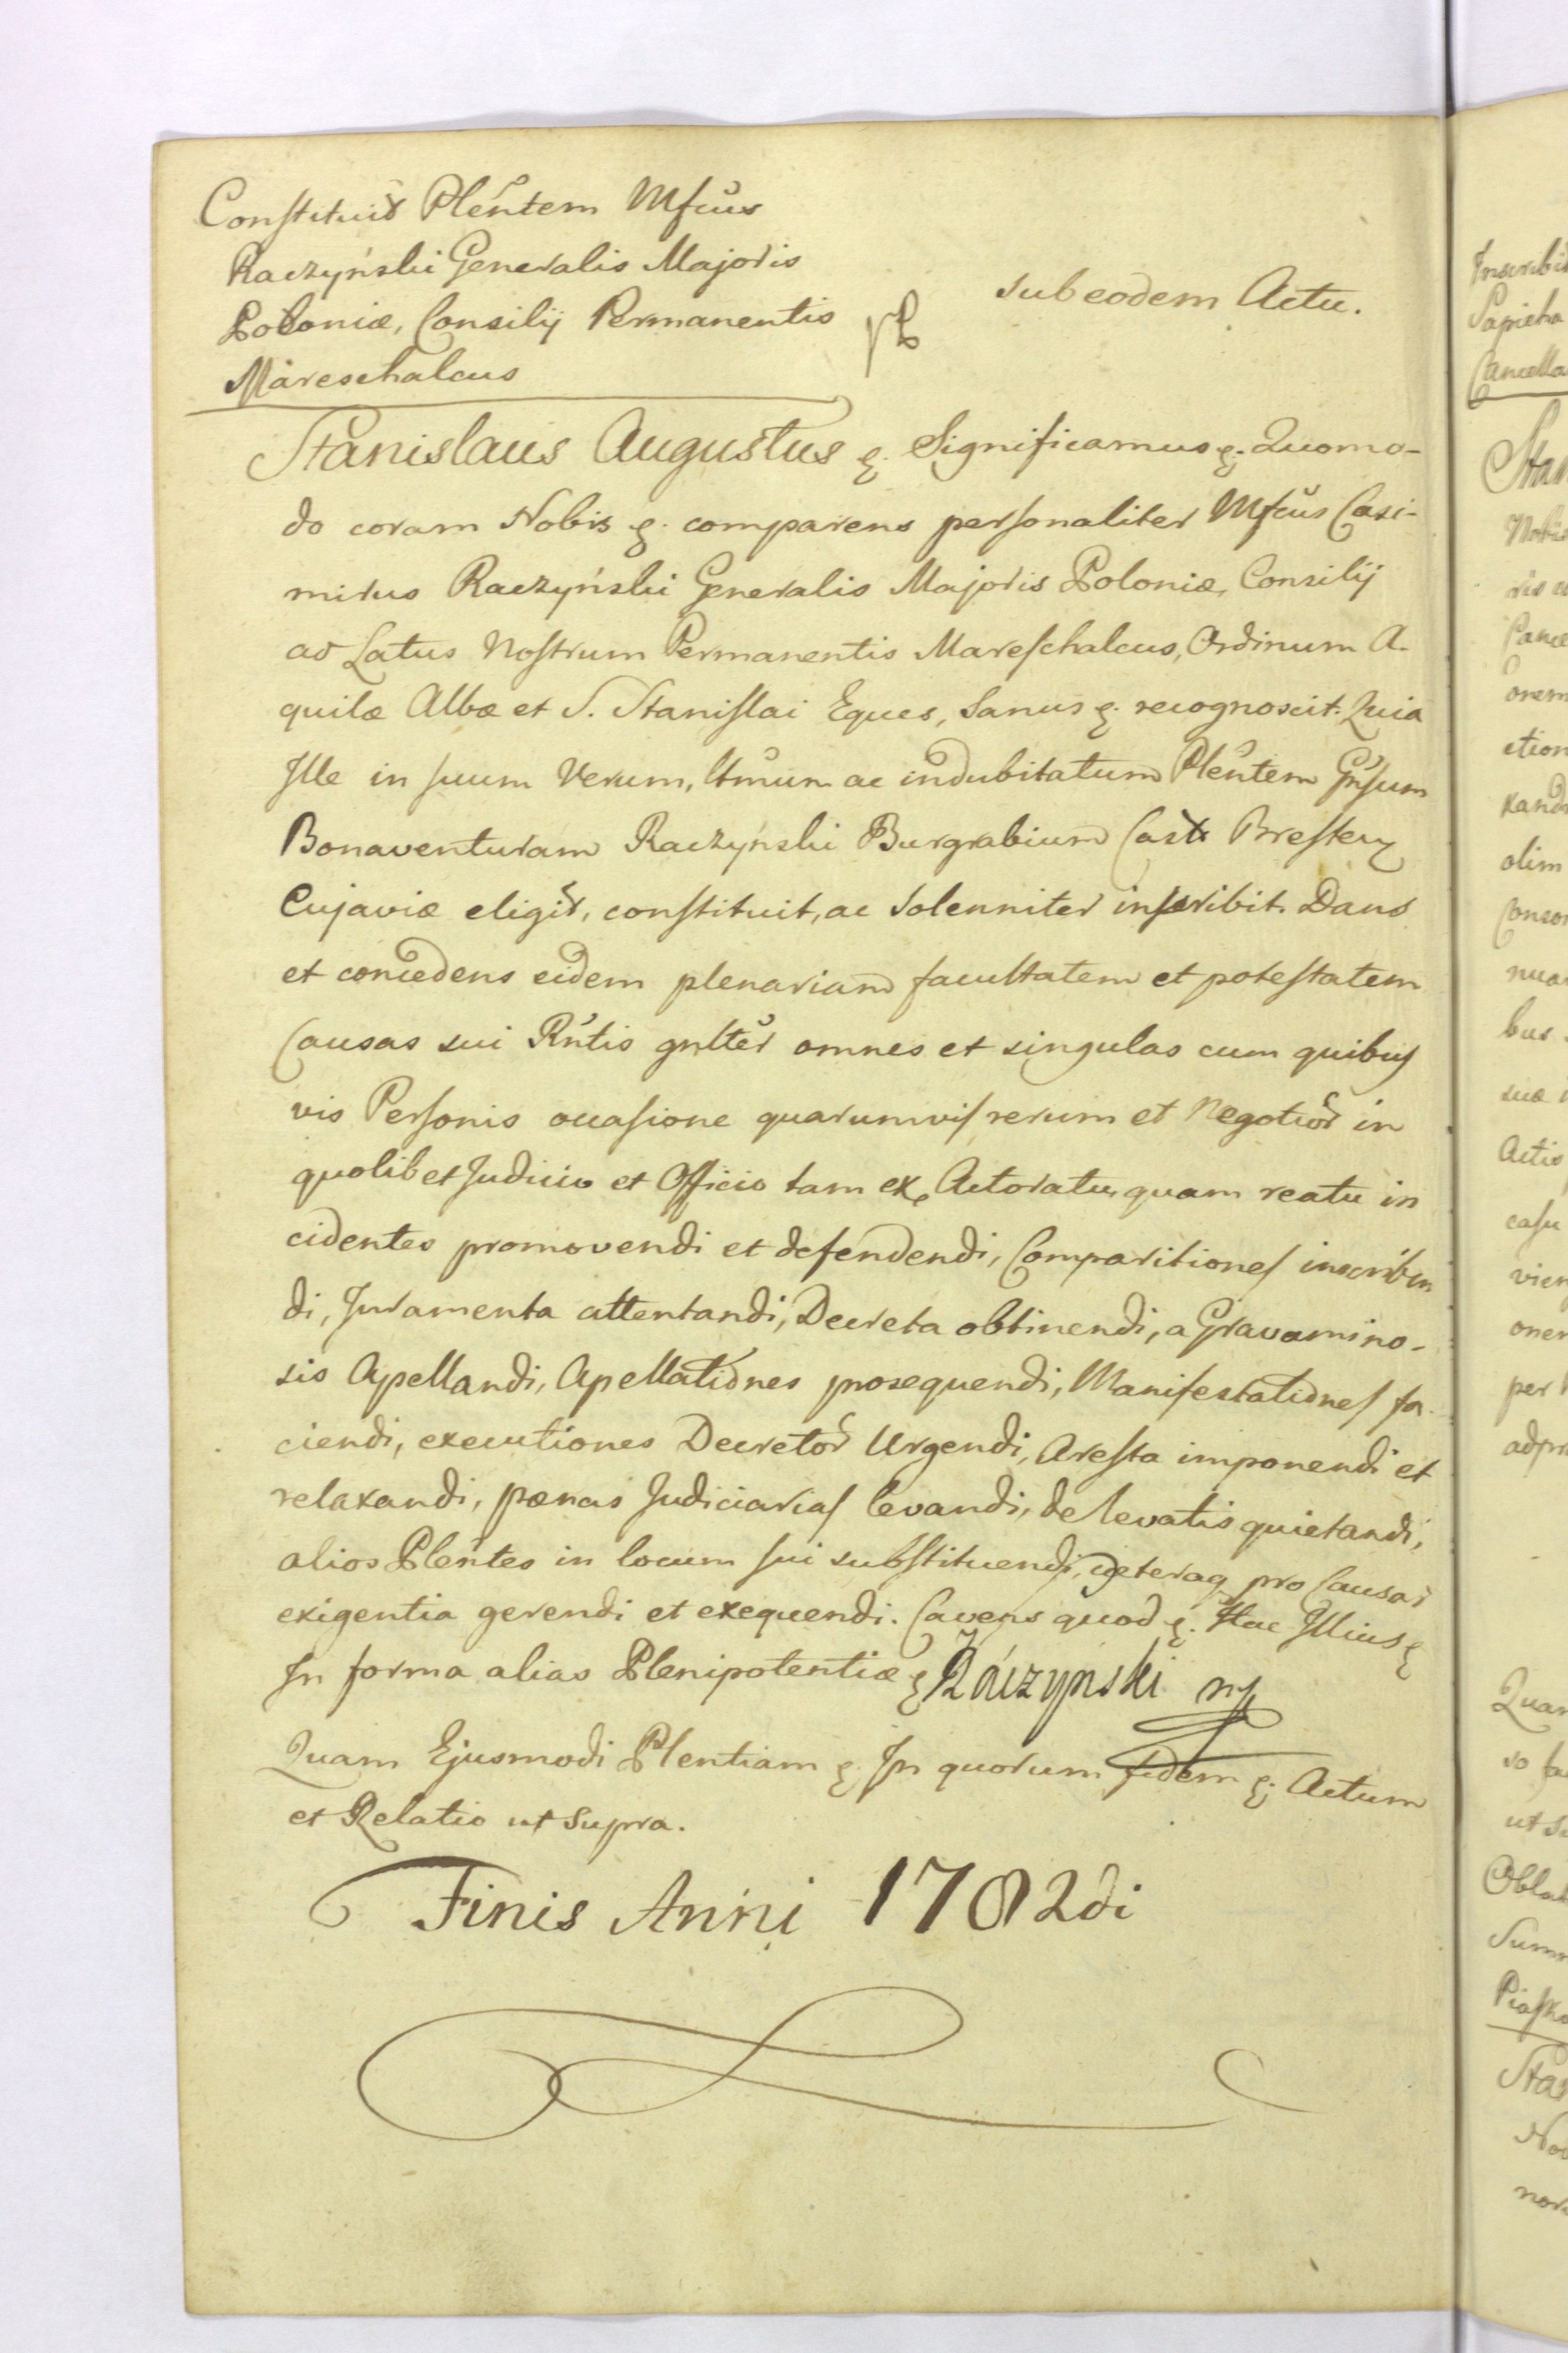 Constituit Plentem Mfcus
Raczyński Generalis Majoris
Poloniæ, Consilij Permanentis
Mareschalcus
sub eodem Actu.
Stanislaus Augustus &. Significamus &. Quomo-
do coram Nobis &. comparens personaliter Mfcus Casi-
mirus Raczyński Generalis Majoris Poloniæ, Consilij
ad Latus Nostrum Permanentis Mareschalcus, Ordinum A-
quilæ Albæ et S. Stanislai Eques, Sanus &. recognoscit. Quia
Ille in suum Verum, ltmum ac indubitatum Plentem Gnsum
Bonaventuram Raczyński Burgrabium Castr Bresten
Cujaviæ eligit, constituit, ac Solenniter inscribit. Dans
et concedens eidem plenariam facultatem et potestatem
Causas sui Rntis gnlter omnes et singulas cum quibus
vis Personis occasione quarumvis rerum et Negotior in
quolibet Judicio et Officio tam ex Actoratu, quam reatu in
cidentes promovendi et defendendi, Comparitiones inscriben
di, Juramenta attentandi, Decreta obtinendi, a Gravamino-
sis Apellandi, Apellationes prosequendi, Manifestationes fa-
ciendi, executiones Decretor Urgendi, Aresta imponendi et
relaxandi, pænas Judiciarias levandi, de levatis quietandi,
alios Plentes in locum sui substituendi, ceteraq pro Causar
exigentia gerendi et exequendi. Cavens quod &. Hac Illius &
In forma alias Plenipotentiæ & Raczynski mp
Quam Ejusmodi Plentiam &. In quorum fidem &. Actum
et Relatio ut Supra.
Finis Anni 1782di
Inscribit
Sapieha
Cancella
Stan
Nobis
onem
etion
xand
olim
Conso
nua
bus
suæ
Actis
casu
vien
oner
per
Quam
ut Su
Oblat
Summ
Piasko
Stan